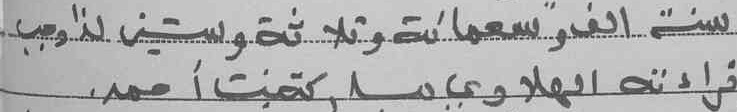 سنة الف وتسعمائة وثلاثة وستين لذا وجب
قراءته الهلاوي كتبت أحمد.